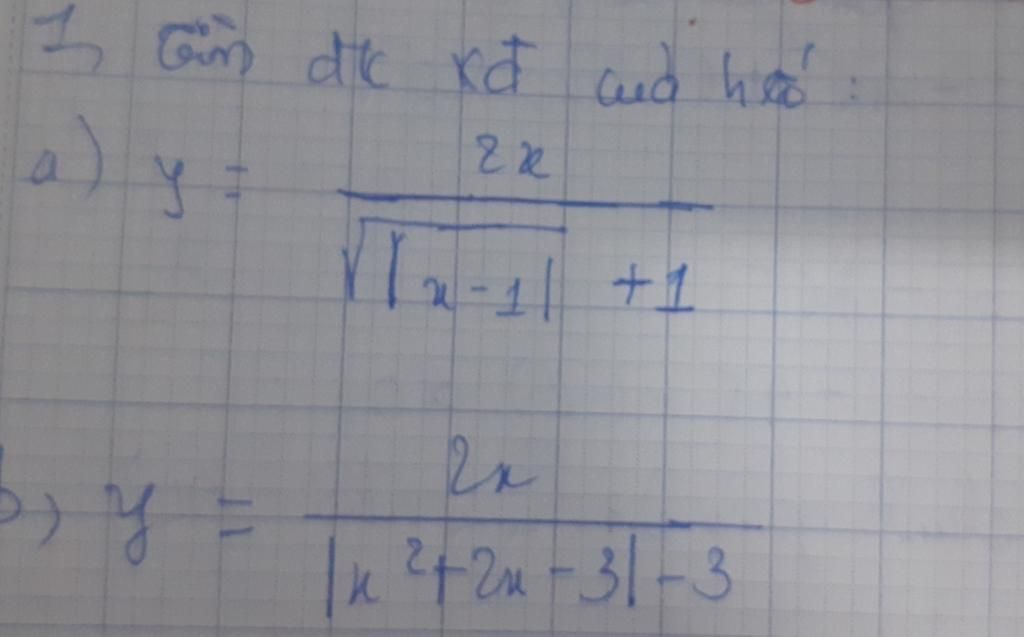 1, Tìm đk xđ của h/số :
a) y = 2x / (√|x-1| +1)
b, y = 2x / (|x²+2x-3|-3)